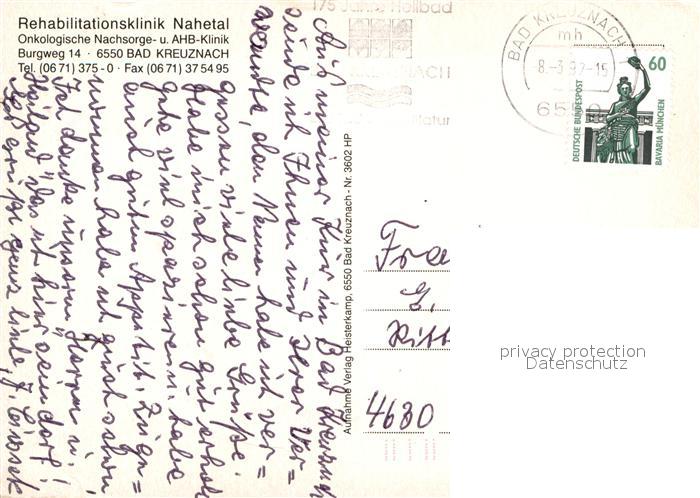 Rehabilitationsklinik Nahetal
Onkologische Nachsorge- u. AHB-Klinik
Burgweg 14 · 6550 BAD KREUZNACH
Tel. (06 71) 375-0 · Fax (06 71) 37 54 95
Aus meiner Kur in Bad Kreuznach
sende ich Ihnen und Ihrer Ver=
wandte, den Namen habe ich ver=
gessen viele liebe Grüße.
Habe mich schon gut erholt
gehe viel spazieren, habe
auch guten Appetit. Zuge=
nommen habe ich auch schon
Ich danke unserm Herrn u.
Heiland das ich hier sein darf!
Es grüßt ganz lieb,
Aufnahme Verlag Heisterkamp, 6550 Bad Kreuznach - Nr. 3602 HP
175 Jahre Heilbad
KREUZNACH
BAD KREUZNACH
mh
8.-3.92-15
6550
60
DEUTSCHE BUNDESPOST
BAVARIA MÜNCHEN
Fra
G.
Ritt
4630
privacy protection
Datenschutz